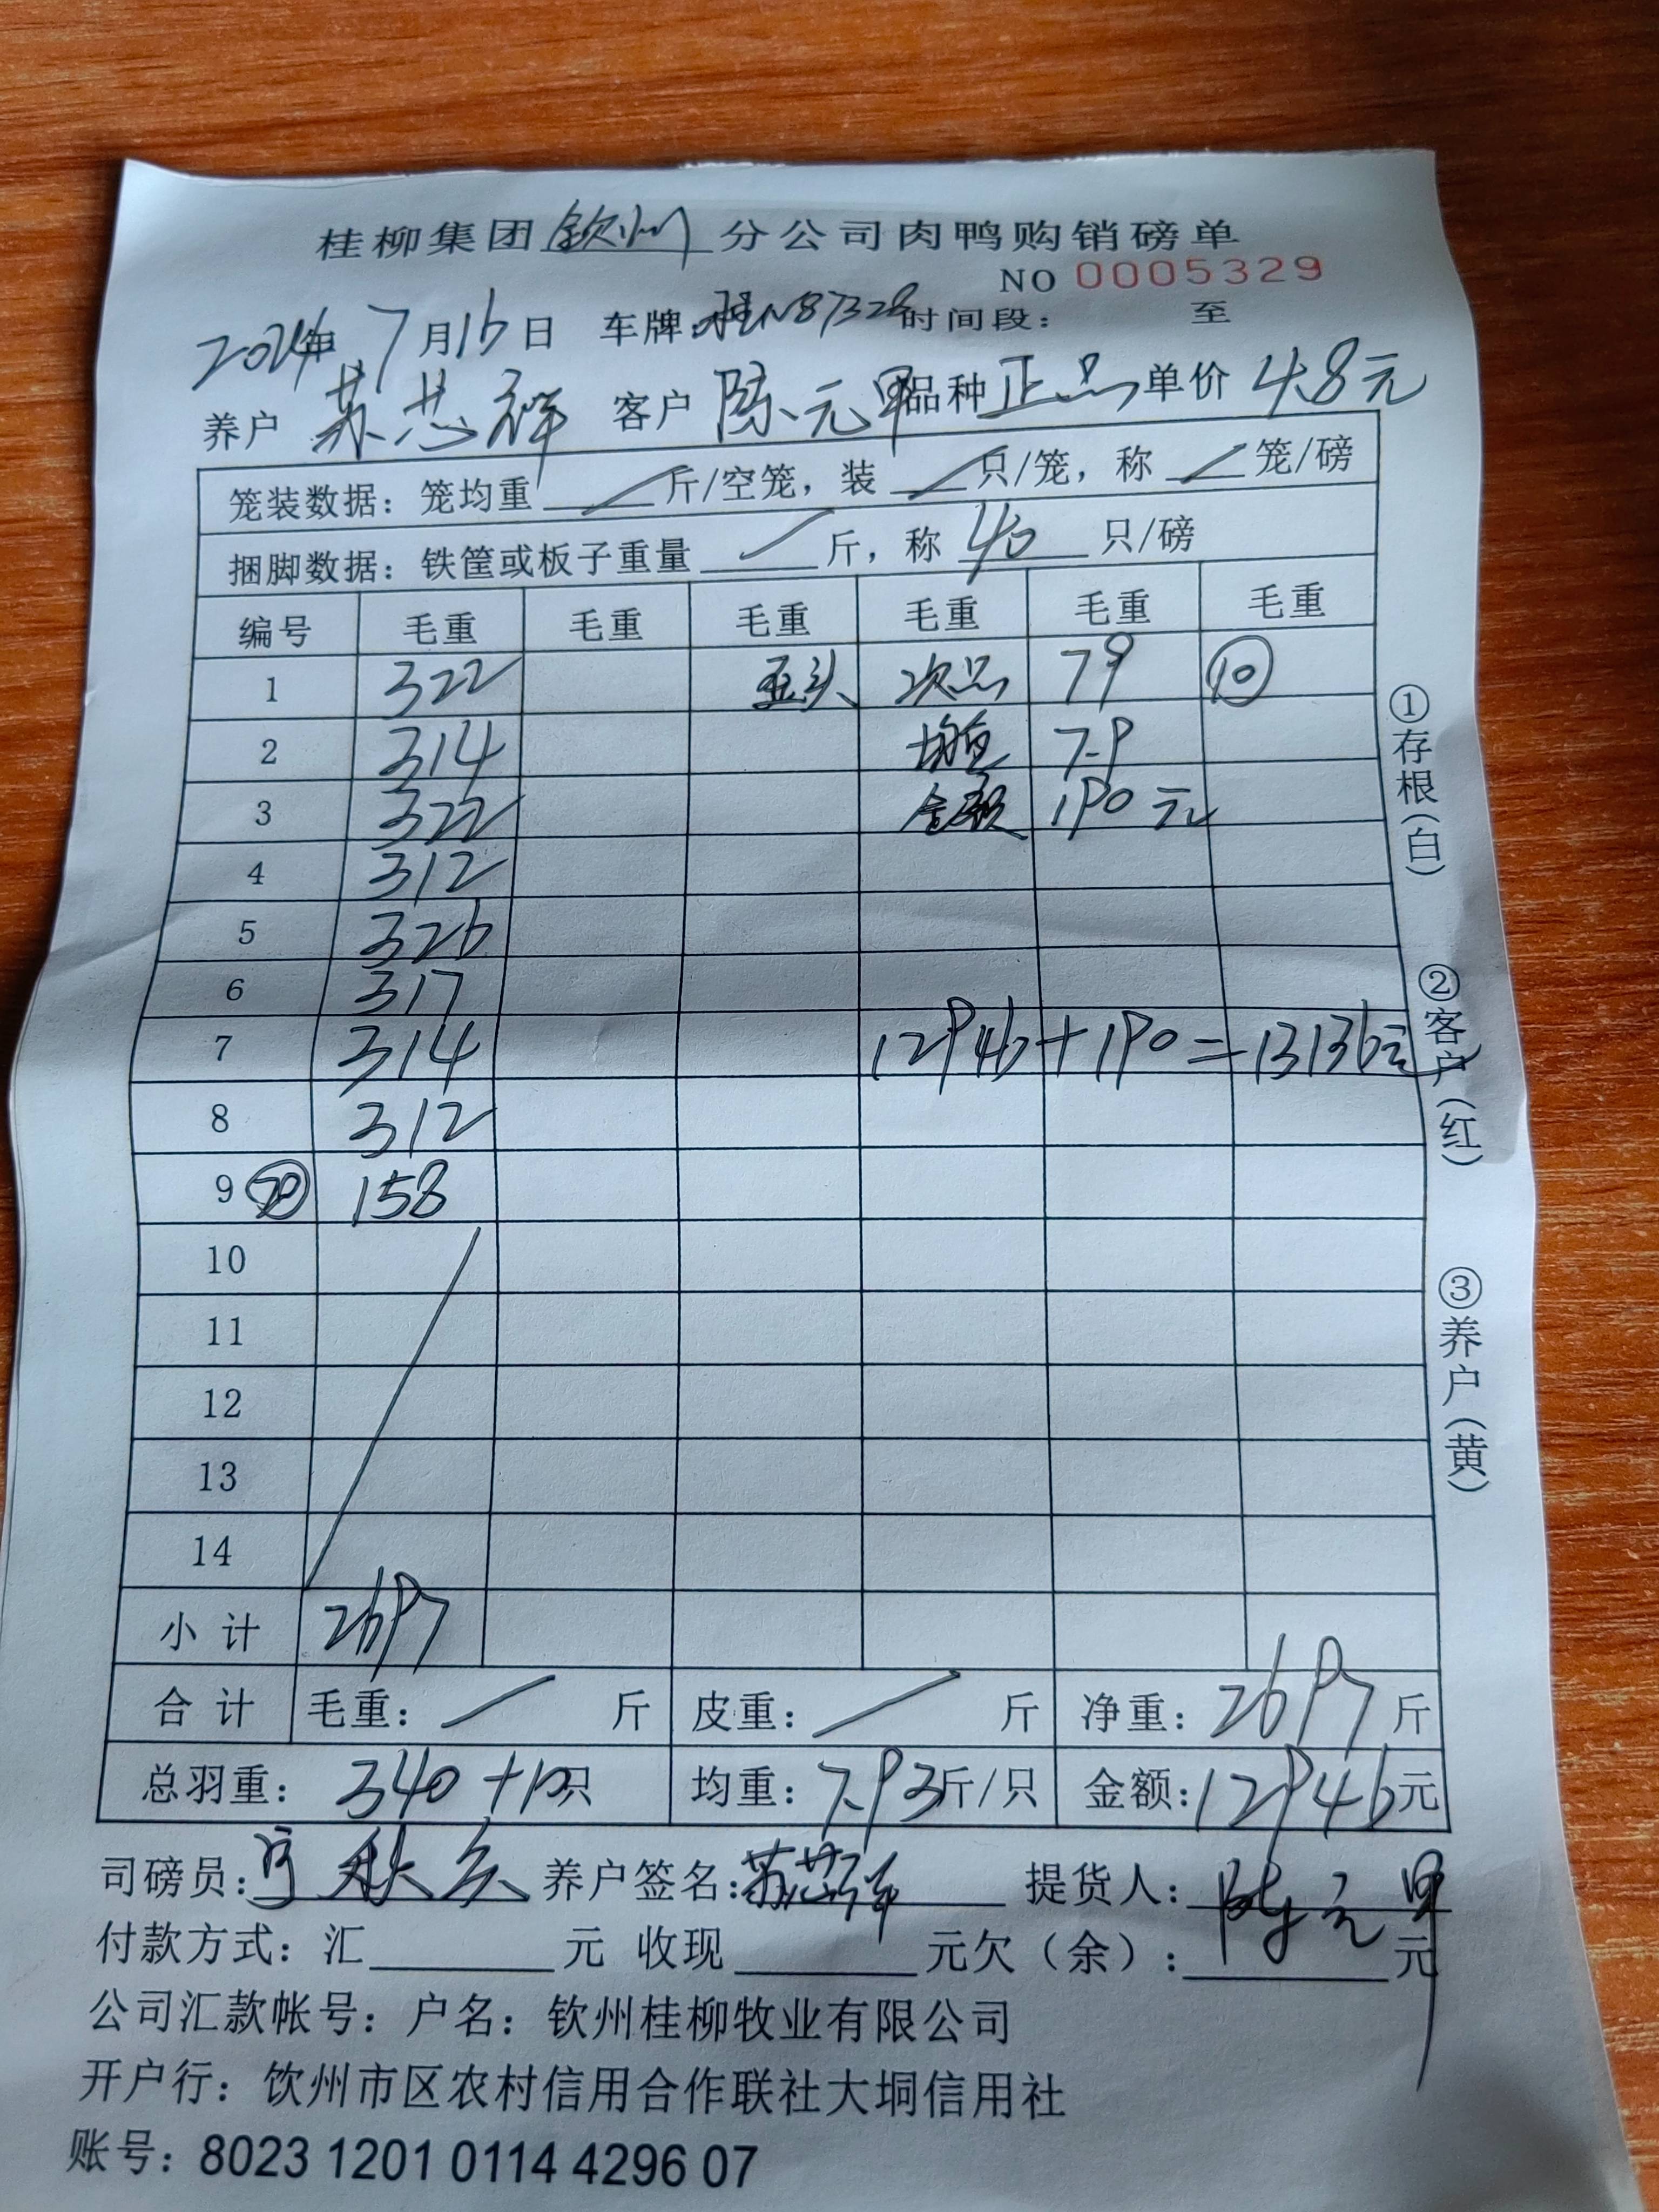 桂柳集团钦州分公司肉鸭购销磅单
NO 0005329
2024年7月16日 车牌:桂N87328 时间段: 至
养户 苏芯祥 客户 陈元甲 品种 正品 单价 4.8元
笼装数据：笼均重 斤/空笼，装 只/笼，称 笼/磅
捆脚数据：铁筐或板子重量 斤，称 40 只/磅
编号 毛重 毛重 毛重 毛重 毛重 毛重
1 322 次品 79 ⑩
2 314 均重 7.9
3 322 金额 190元
4 312
5 326
6 317
7 314 12946+190=13136元
8 312
9 ⑳ 158
10
11
12
13
14
小计 2697
合计 毛重： 斤 皮重： 斤 净重：2697斤
总羽重：340+10只 均重：7.93斤/只 金额:12946元
司磅员: 养户签名:苏芯祥 提货人：陈元甲
付款方式：汇 元 收现 元欠（余）: 元
公司汇款帐号：户名：钦州桂柳牧业有限公司
开户行：饮州市区农村信用合作联社大垌信用社
账号：8023 1201 0114 4296 07
①存根(白)
②客户(红)
③养户(黄)